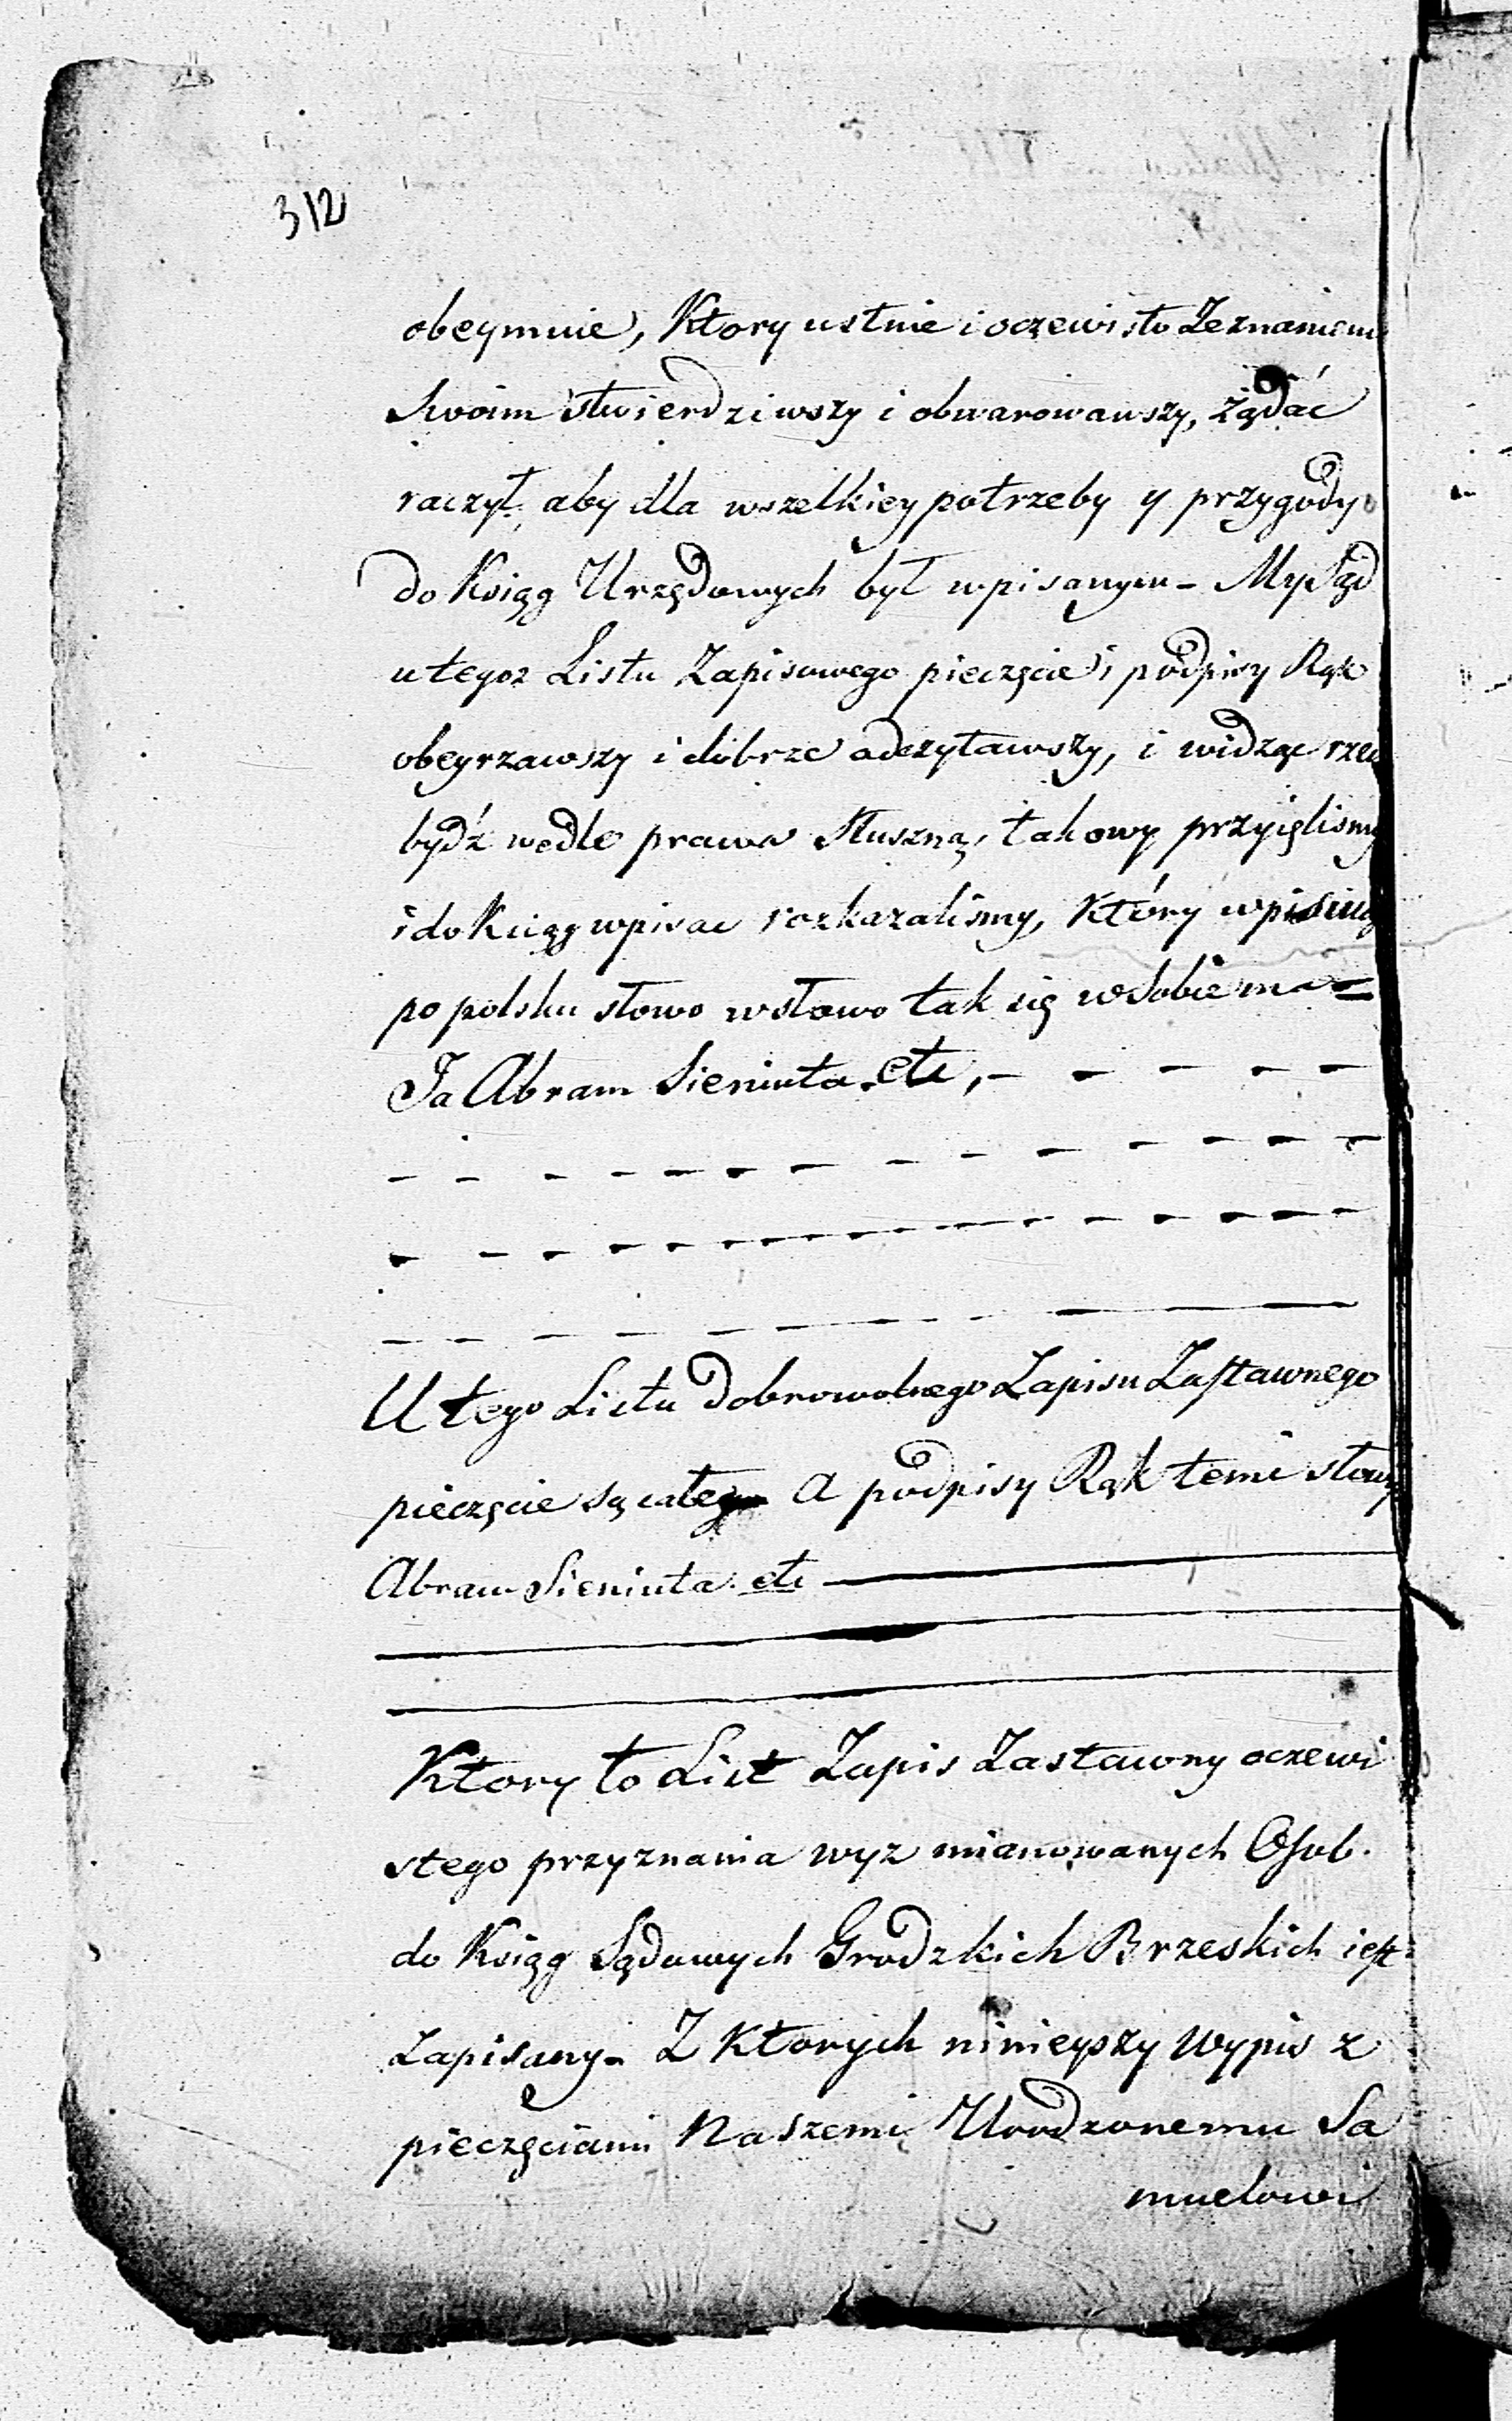 312
obeymuie, Ktory ustnie i oczewisto Zeznaniem
Swoim stwierdziwszy i obwarowawszy, żądać
raczył, aby dla wszelkiey potrzeby y przygody
do Ksiąg Urzędowych był wpisanym - My Sąd
u tegoz Listu Zapisowego pieczęcie i podpisy Rąk
obeyrzawszy i dobrze odczytawszy, i widząc rzecz
bydź wedle prawa Słuszną, takowy przyięlismy
i do Ksiąg wpisac rozkazalismy, Który wpisując
po polsku słowo wsłowo tak się wSobie ma =
Ja Abram Sieniuta etc, - - - - -
U tego Listu dobrowolnego Zapisu Zastawnego
pieczęcie są całe A podpisy Rąk temi słowy
Abram Sieniuta etc
Ktory to List Zapis Zastawny oczewi
stego przyznania wyz mianowanych Osob.
do Ksiąg Sądowych Grodzkich Brzeskich iest
Zapisany. Z Ktorych ninieyszy Wypis z
pieczęciami Naszemi Urodzonemu Sa
muelowi